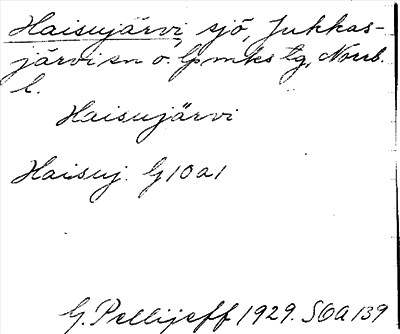 Haisujärvi, sjö, Jukkas-
järvi sn o. lpmks tg, Norrb.
l.
Haisujärvi
Haisuj. G10a1
G. Pellijeff 1929. SOA 139